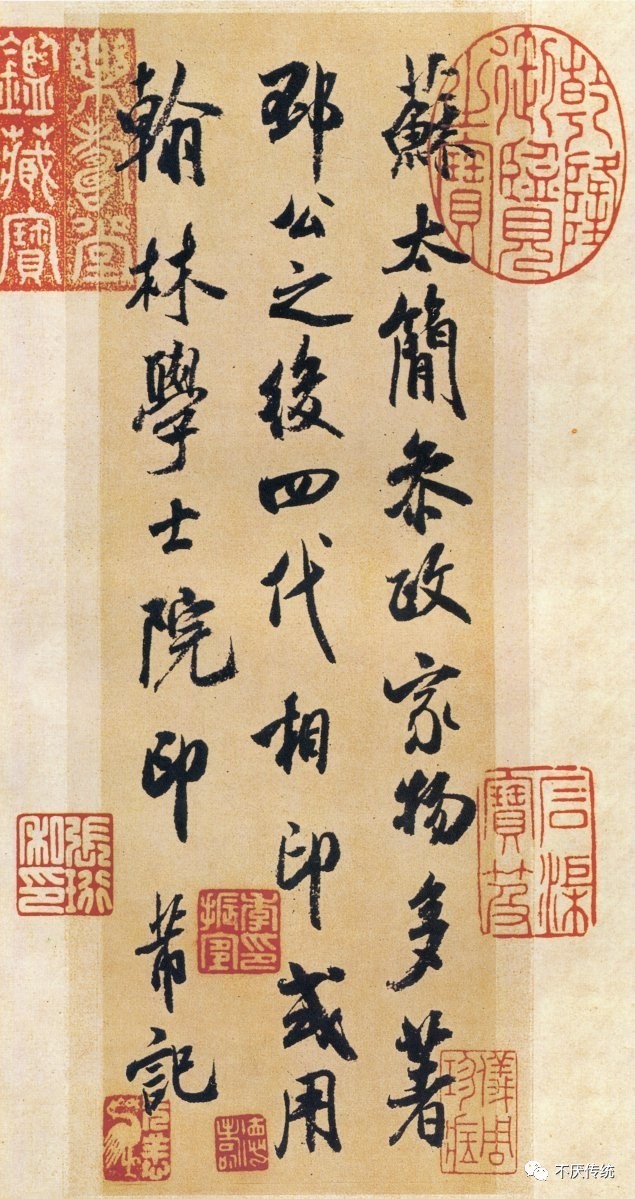 蘇太簡參政家物多著
邳公之後四代相印或用
翰林學士院印 芾記
乾隆御覽之寶
樂壽堂鑑藏寶
張珩私印
儀周珍藏
不厌传统